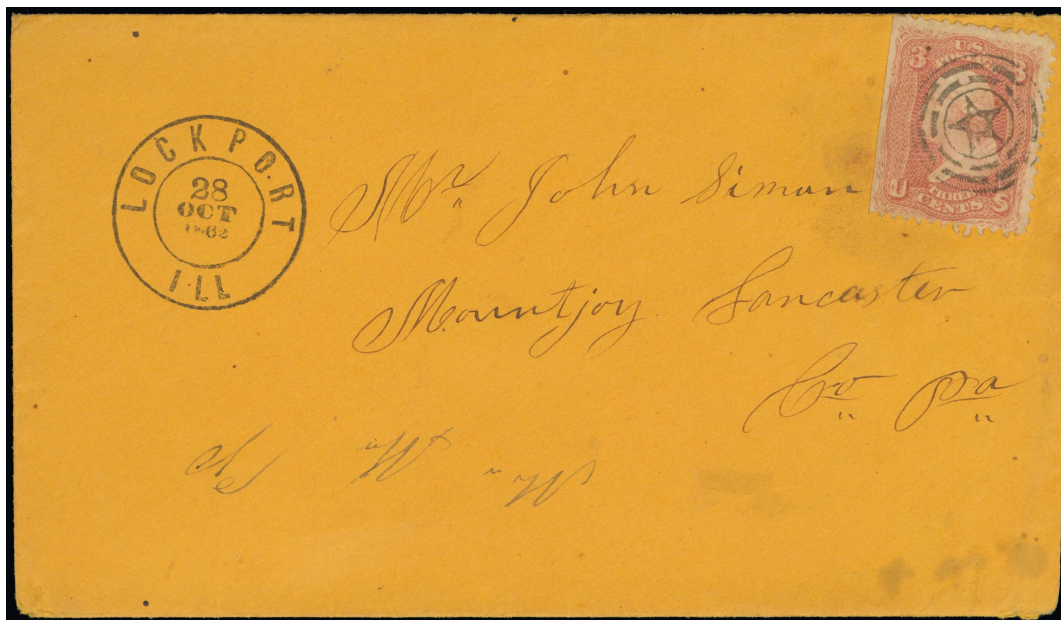 LOCKPORT
28
OCT
1862
ILL
3 U.S.
U S
CENTS
Mr. John Simon
Mountjoy Lancaster
Co pa